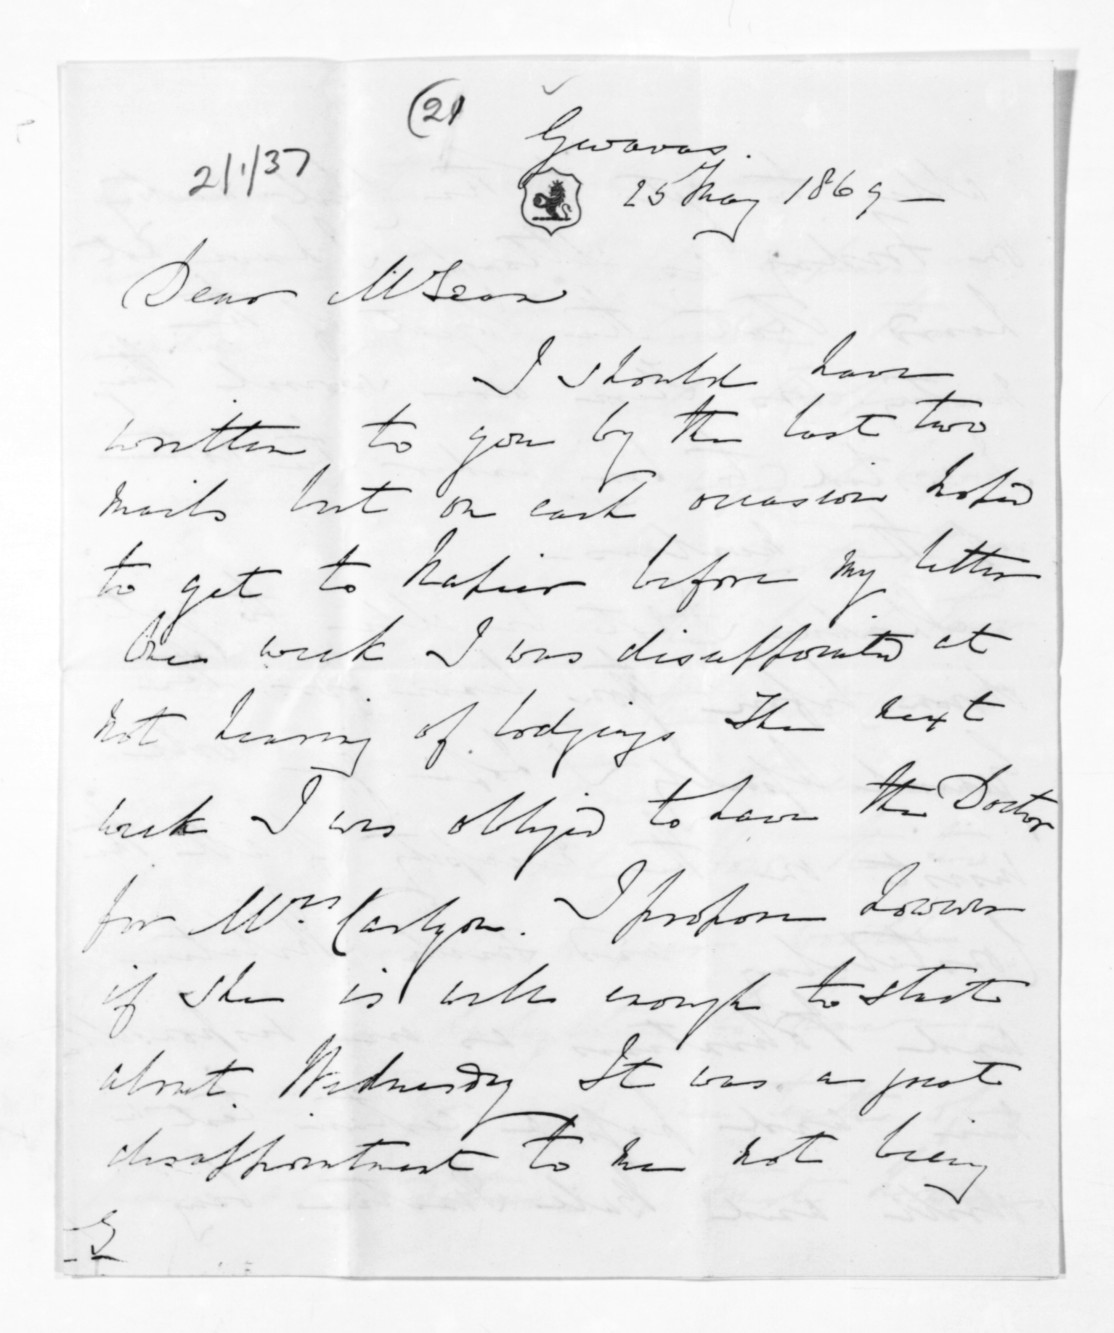 (21
2/1/37
Gwavas.
25 May 1869 —
Dear McLean
I should have
written to you by the last two
mails but on each occasion hoped
to get to Napier before my letter
One week I was disappointed at
not hearing of lodgings The next
week I was obliged to have the Doctor
for Mrs Carlyon. I propose however
if she is well enough to start
about Wednesday It was a great
disappointment to me not being